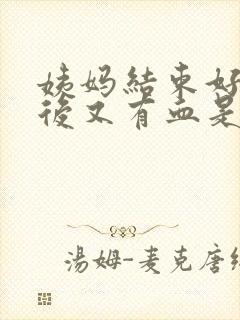 姨妈結束好
後又有血是
湯姆-麦克唐